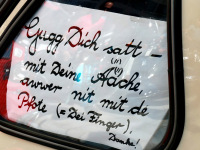 Gugg Dich satt –
mit Deine Aache,
awwer nit mit de
Pfote (= Dei Finger),
Danke!